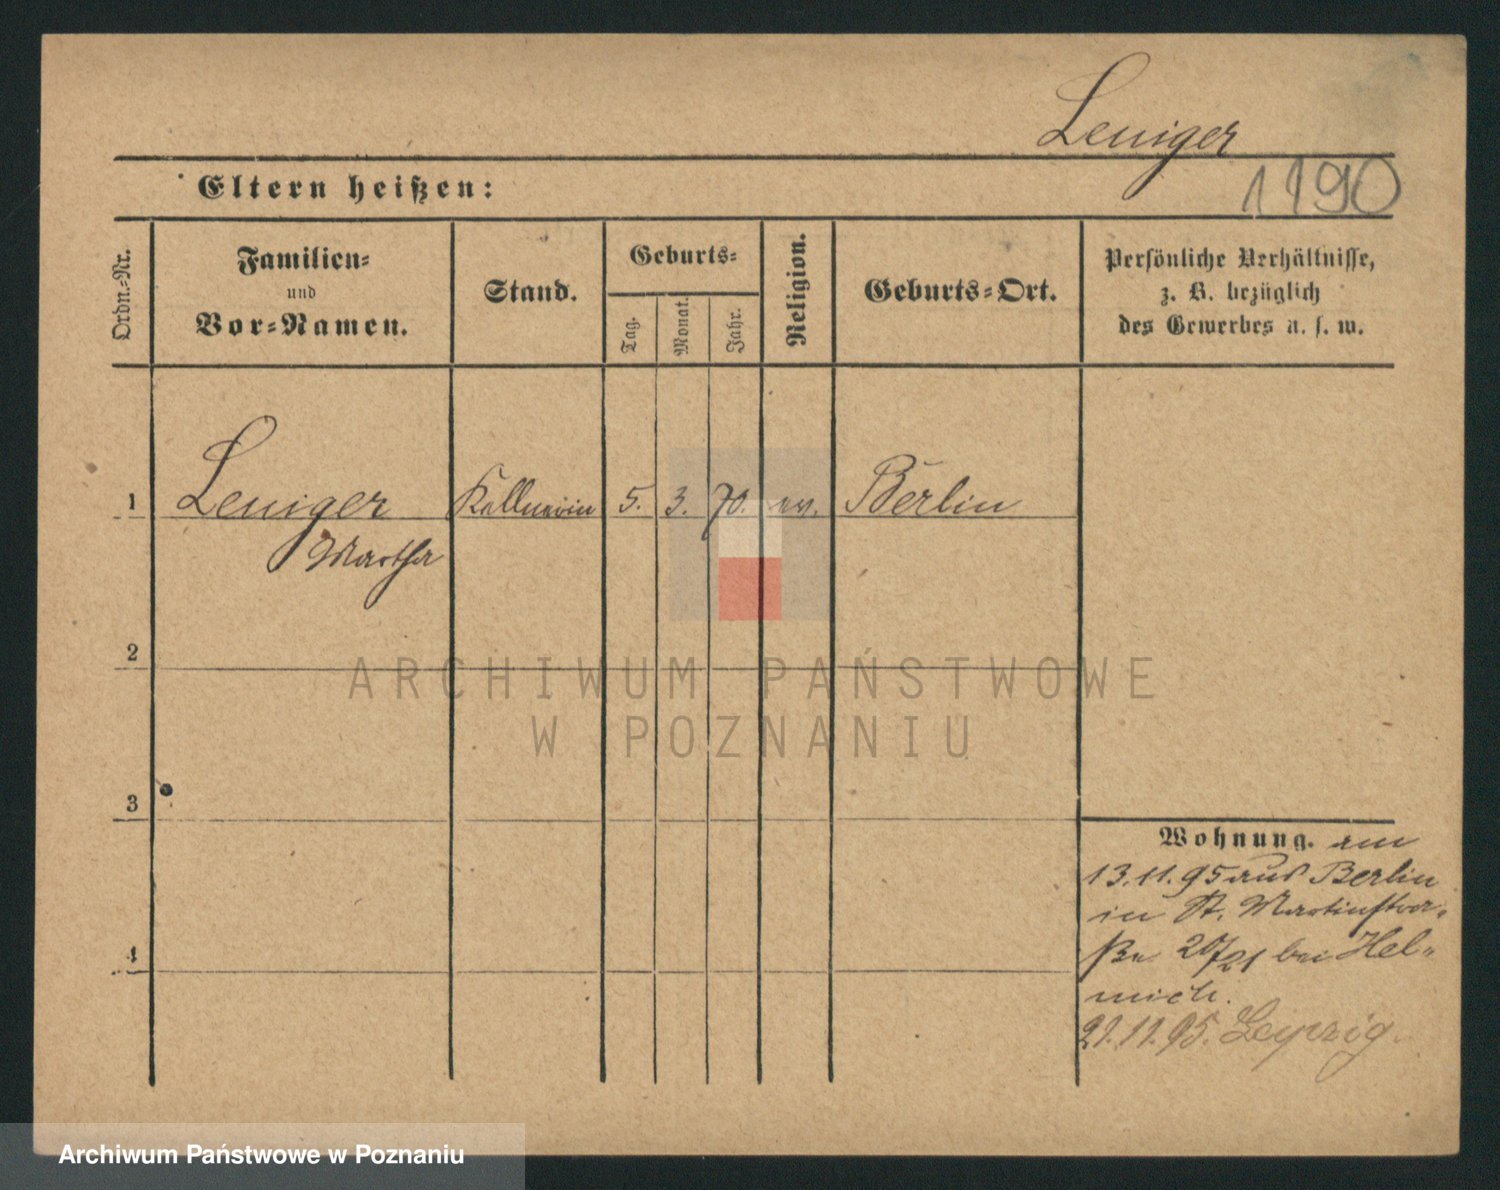 Leniger
Eltern heißen:
1190
Ordn.-Nr.
Familien-
und
Vor-Namen.
Stand.
Geburts-
Tag.
Monat.
Jahr.
Religion.
Geburts-Ort.
Persönliche Verhältnisse,
z. B. bezüglich
des Gewerbes u. s. w.
1 Leniger Kellnerin 5. 3. 70. ev. Berlin
Martha
2
ARCHIWUM PAŃSTWOWE
W POZNANIU
3
Wohnung. am
13.11.95 aus Berlin
in St. Martinstra-
ße 20/21 bei Hel-
mich.
4
21.11.95. Leipzig.
Archiwum Państwowe w Poznaniu